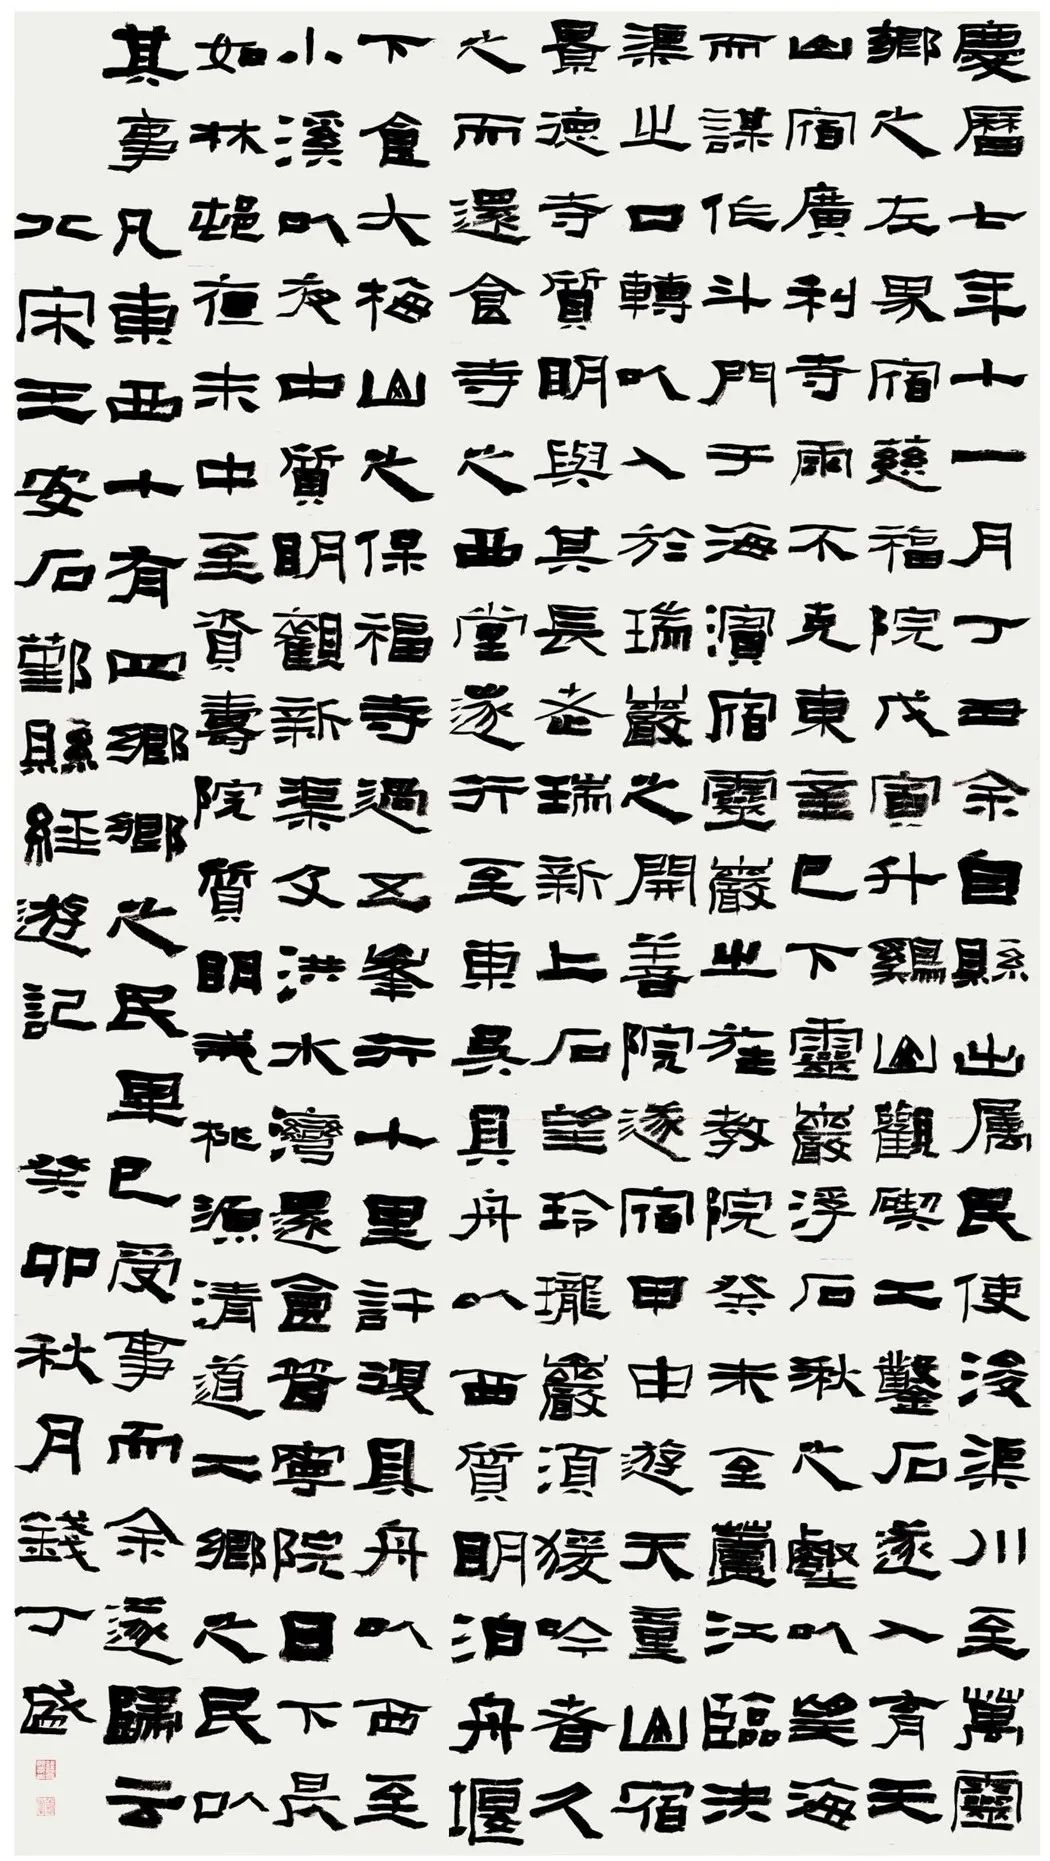 慶曆七年十一月丁丑余自縣出屬民使浚渠川至萬靈
鄉之左界宿慈福院戊寅升鷄山觀碶工鑿石遂入育天
山宿廣利寺雨不克東辛巳下靈巖浮石湫之壑以望海
而謀作斗門于海濱宿靈巖之旌教院癸未至蘆江臨決
渠之口轉以入於瑞巖之開善院遂宿甲申游天童山宿
景德寺質明與其長老瑞新上石望玲瓏巖須猨吟者久
之而還食寺之西堂遂行至東吳具舟以西質明泊舟堰
下食大梅山之保福寺過五峯行十里許復具舟以西至
小溪以夜中質明觀新渠及洪水灣還食普寧院日下昃
如林邨夜未中至資壽院質明戒桃源清道二鄉之民以
其事凡東西十有四鄉鄉之民畢已受事而余遂歸云
北宋王安石鄞縣經遊記 癸卯秋月錢丁盛